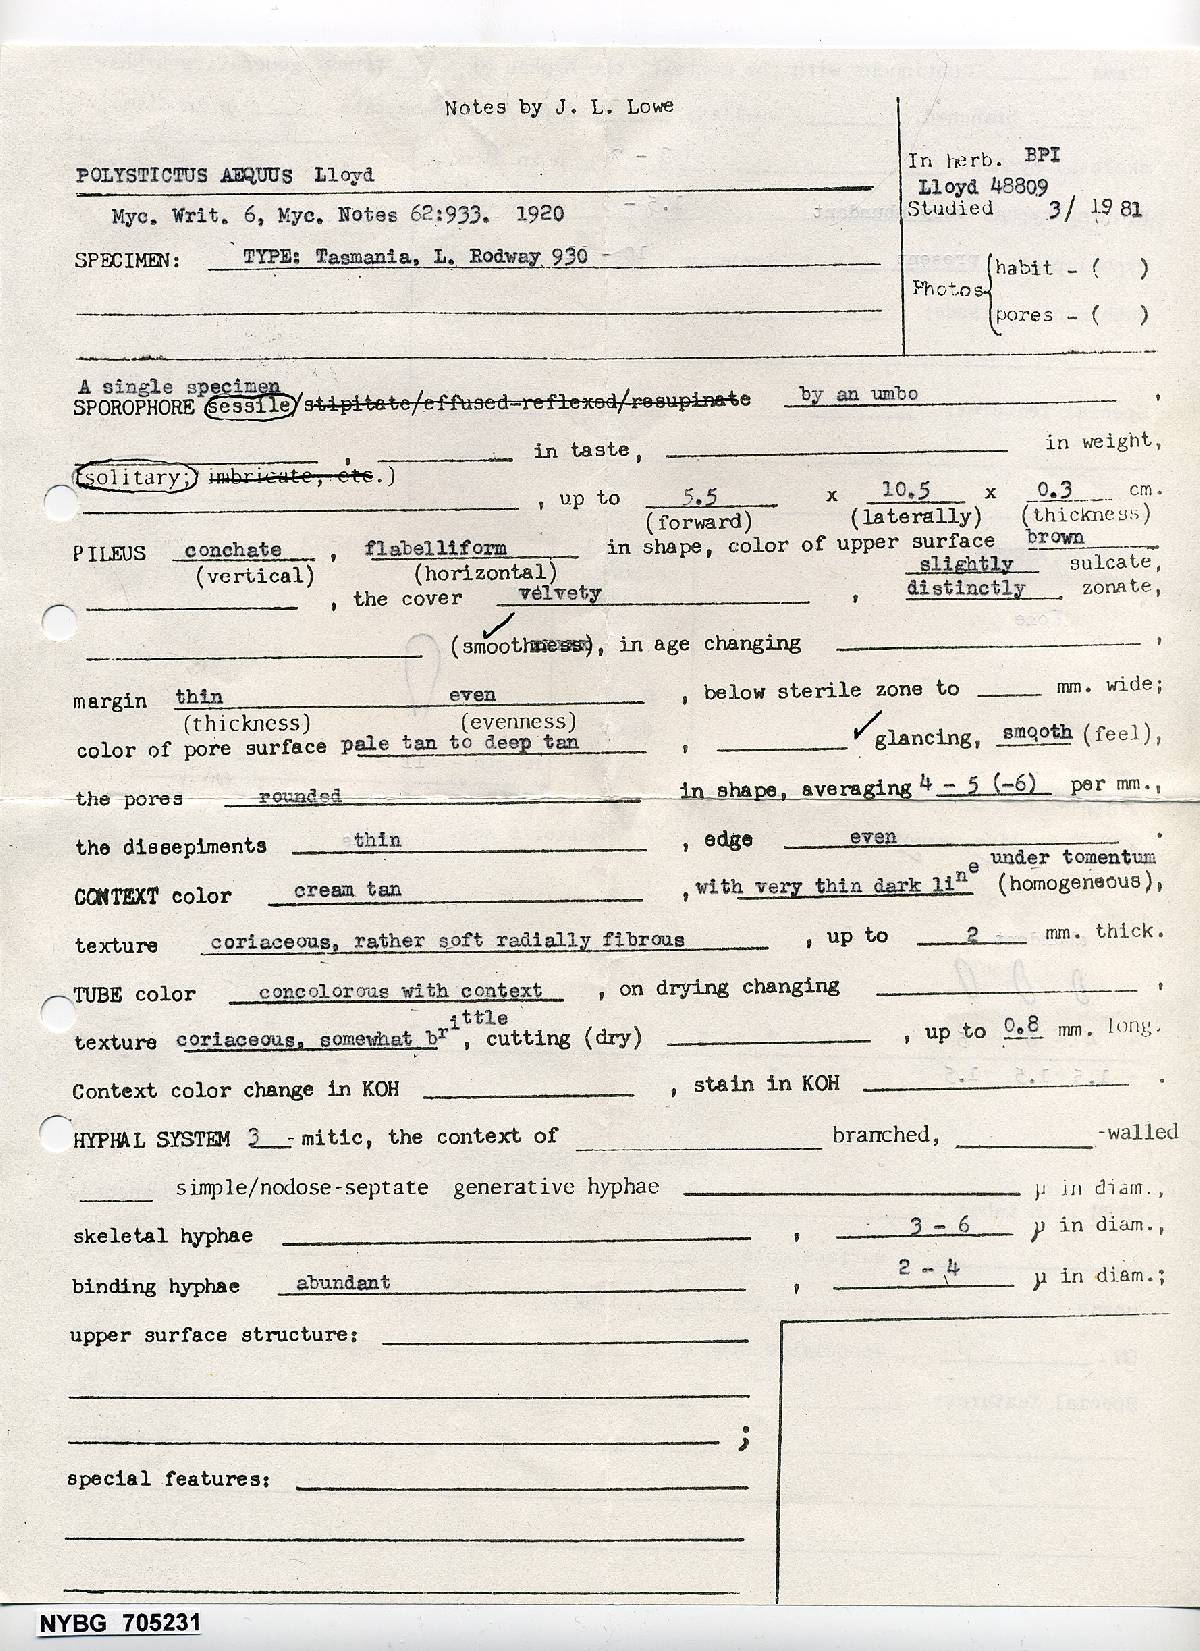 Notes by J. L. Lowe
In herb. BPI
Lloyd 48809
Studied 3/ 1981
Photos habit - ( )
pores - ( )
POLYSTICTUS AEQUUS Lloyd
Myc. Writ. 6, Myc. Notes 62:933. 1920
SPECIMEN: TYPE: Tasmania, L. Rodway 930
A single specimen
SPOROPHORE sessile/stipitate/effused-reflexed/resupinate by an umbo ,
, in taste, in weight,
(solitary; imbricate, etc.)
, up to 5.5 x 10.5 x 0.3 cm.
(forward) (laterally) (thickness)
PILEUS conchate , flabelliform in shape, color of upper surface brown
(vertical) (horizontal) slightly sulcate,
, the cover velvety , distinctly zonate,
✓
(smoothness), in age changing ,
margin thin even , below sterile zone to mm. wide;
(thickness) (evenness)
color of pore surface pale tan to deep tan , ✓ glancing, smooth (feel),
the pores rounded in shape, averaging 4 - 5 (-6) per mm.,
the dissepiments thin , edge even .
under tomentum
CONTEXT color cream tan , with very thin dark line (homogeneous),
texture coriaceous, rather soft radially fibrous , up to 2 mm. thick.
TUBE color concolorous with context , on drying changing ,
texture coriaceous, somewhat brittle, cutting (dry) , up to 0.8 mm. long.
Context color change in KOH , stain in KOH .
HYPHAL SYSTEM 3 -mitic, the context of branched, -walled
simple/nodose-septate generative hyphae µ in diam.,
skeletal hyphae , 3 - 6 µ in diam.,
binding hyphae abundant , 2 - 4 µ in diam.;
upper surface structure:
;
special features:
NYBG 705231